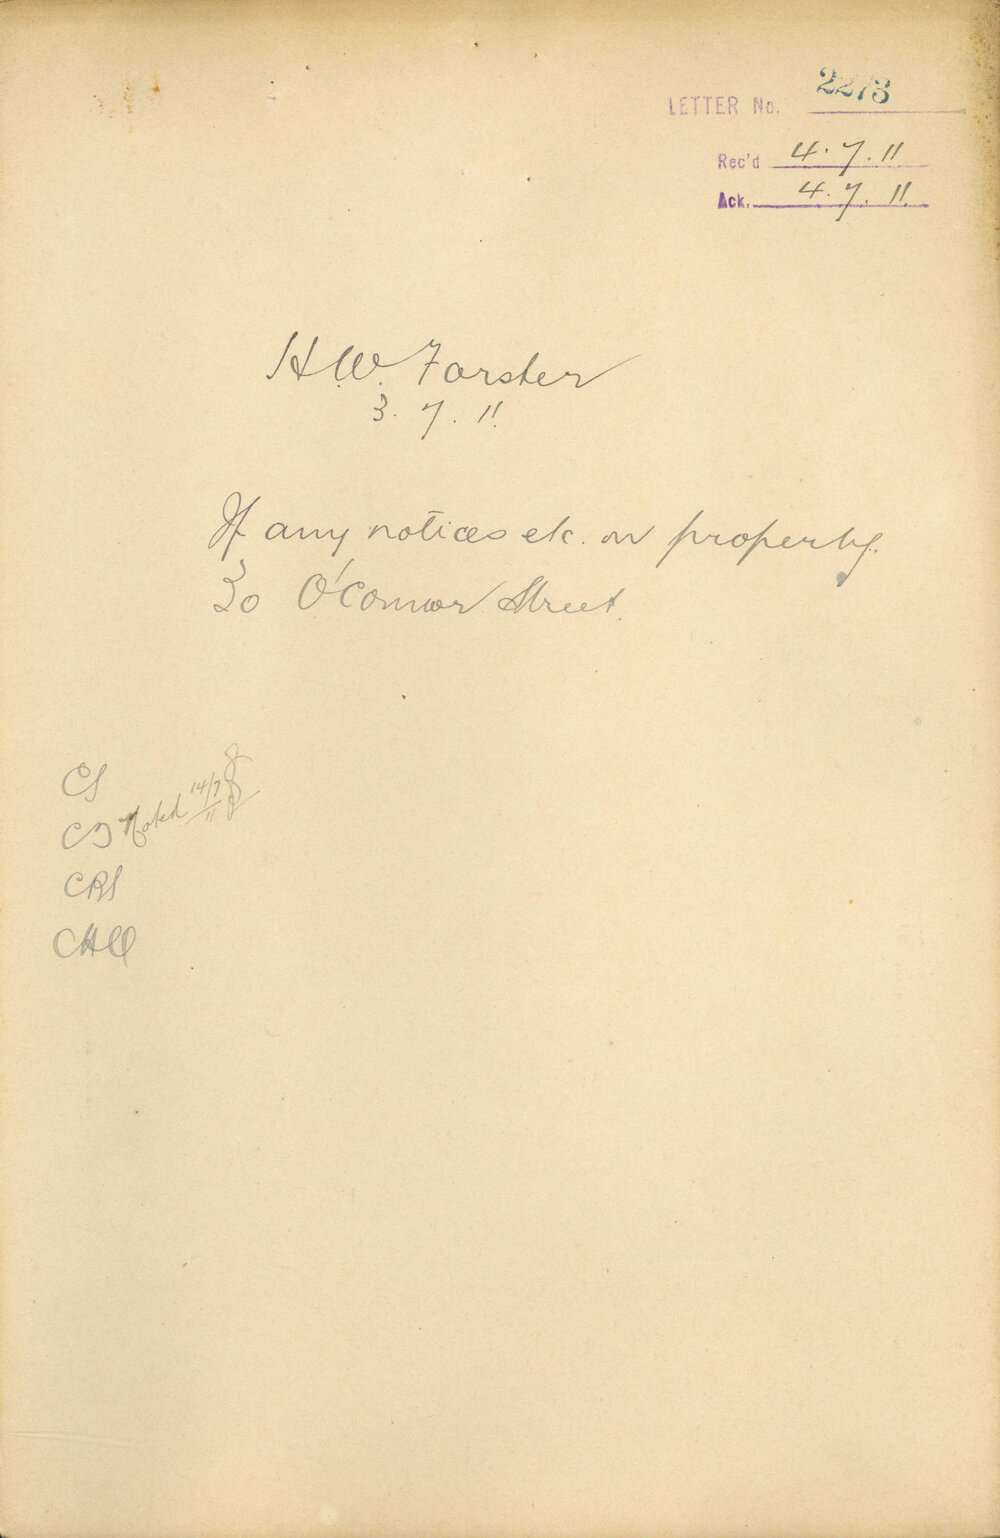 LETTER No. 2273
Rec'd 4.7.11
Ack. 4.7.11.
H.W. Forster
3.7.11.
If any notices etc. on property.
30 O'Connor Street.
CS
Noted 14/7/11
CRS